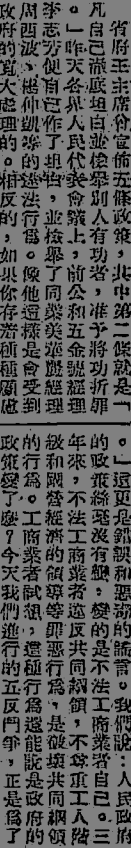 省府王主席曾宣佈五條政策，其中第二條就是「
凡自己澈底坦白並檢舉別人有功者，准予將功折罪
。」昨天各界人民代表會議上，前公和五金號經理
李志芳便自己作了坦白，並檢舉了同業美華號經理
周西波、楊仲凱等的違法行爲。像他這樣是會受到
政府的寬大處理的。相反的，如果你存着種種顧慮
。」這更是錯誤和惡毒的謊言。我們說：人民政府
的政策絲毫沒有變，變的是不法工商業者自己。三
年來，不法工商業者違反共同綱領，不尊重工人階
級和國營經濟的領導等罪惡行爲，是破壞共同綱領
的行爲。工商業者試想，這種行爲還能說是政府的
政策變了麼？今天我們進行的五反鬥爭，正是爲了